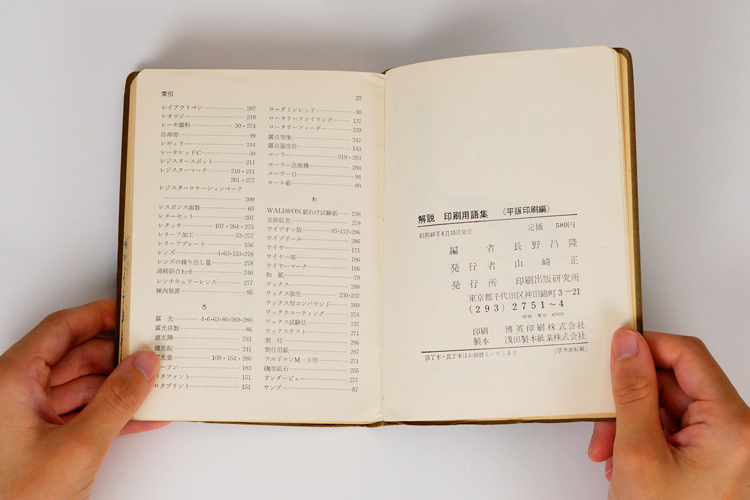 索引
27
レイアウトマン 287
レオロジー 218
レーキ顔料 30・274
冷却部 99
レギュラー 244
レーキレッドC 30
レジスタースポット 211
レジスターマーク 210・211
261・277
レジスターロケーションマーク
209
レスポンス函数 65
レターセット 207
レタッチ 107・264・275
レリーフ加工 53・277
レリーフプレート 156
レンズ 4・63・153・278
レンズの繰り出し量 278
連続組合わせ 246
レンチキュラーレンズ 277
練肉装置 95
ろ
露光 4・6・63・86・269・280
露光係数 86
露光量 109・154・280
ーソン 183
ロタファント 151
ロタプリント 151
ローダミンレッド 30
ロータリーファイリング 127
ロータリーフィーダ 239
露点現象 247
露点湿度計 143
ローラー 219・283
ローラー洗滌機 284
ローラー目 94
ロール紙 80
わ
WALDRON 紙むけ試験紙 228
歪曲収差 279
ワイプオン版 95・172・286
ワイプドール 286
ワイヤー 171
ワイヤー部 186
ワイヤーマーク 186
和紙 79
ワックス 280
ワックス強度 230・237
ワックス型コンパウンド 260
ワックスコーティング 274
ワックス試験法 237
ワックステスト 271
割付 286
割付用紙 287
ワルドロンM—3型 271
碗型砥石 255
ワンダービュー 277
ワンプ 87
解説 印刷用語集 《平版印刷編》
昭和40年4月15日発行 定価 580円
編者 長野昌隆
発行者 山崎正
発行所 印刷出版研究所
東京都千代田区神田錦町3—21
(293) 2751~4
印刷 博英印刷株式会社
製本 浅田製本紙業株式会社
落丁本・乱丁本はお取替えいたします (禁無断転載)